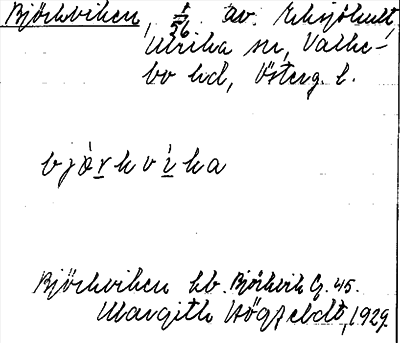 Björkviken, 1/56 av. Eksjöhult,
Ulrika sn, Valke-
bo hd, Österg. l.
bjǽrkvìka
Björkviken lb. Björkvik G. 45.
Margith Högfeldt, 1929.